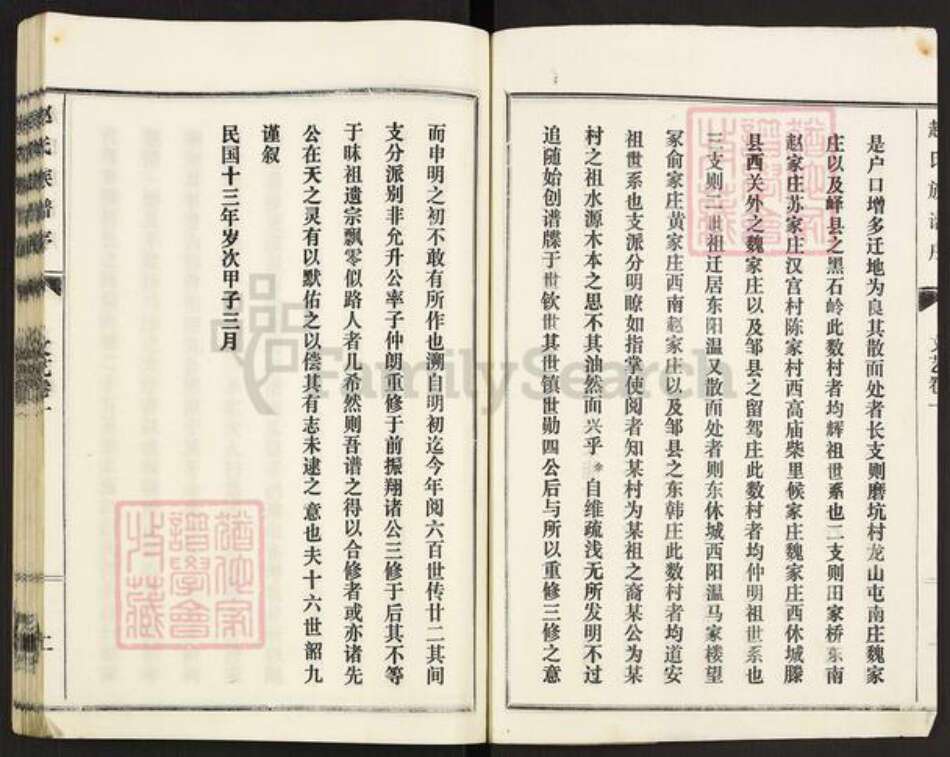 是户口增多迁地为良其散而处者长支则磨坑村龙山屯南庄魏家
庄以及峄县之黑石岭此数村者均辉祖世系也二支则田家桥东南
赵家庄苏家庄汉宫村陈家村西高庙柴里候家庄魏家庄西休城滕
县西关外之魏家庄以及邹县之留驾庄此数村者均仲明祖世系也
三支则二世祖迁居东阳温又散而处者则东休城西阳温马家楼望
冢俞家庄黄家庄西南赵家庄以及邹县之东韩庄此数村者均道安
祖世系也支派分明瞭如指掌使阅者知某村为某祖之裔某公为某
村之祖水源木本之思不其油然而兴乎余自维疏浅无所发明不过
追随始创谱牒于世钦世其世镇世勋四公后与所以重修三修之意
而申明之初不敢有所作也溯自明初迄今年阅六百世传廿二其间
支分派别非允升公率子仲朗重修于前振翔诸公三修于后其不等
于昧祖遗宗飘零似路人者几希然则吾谱之得以合修者或亦诸先
公在天之灵有以默佑之以偿其有志未逮之意也夫十六世韶九
谨叙
民国十三年岁次甲子三月
赵氏族谱序
文艺卷一
二
FamilySearch